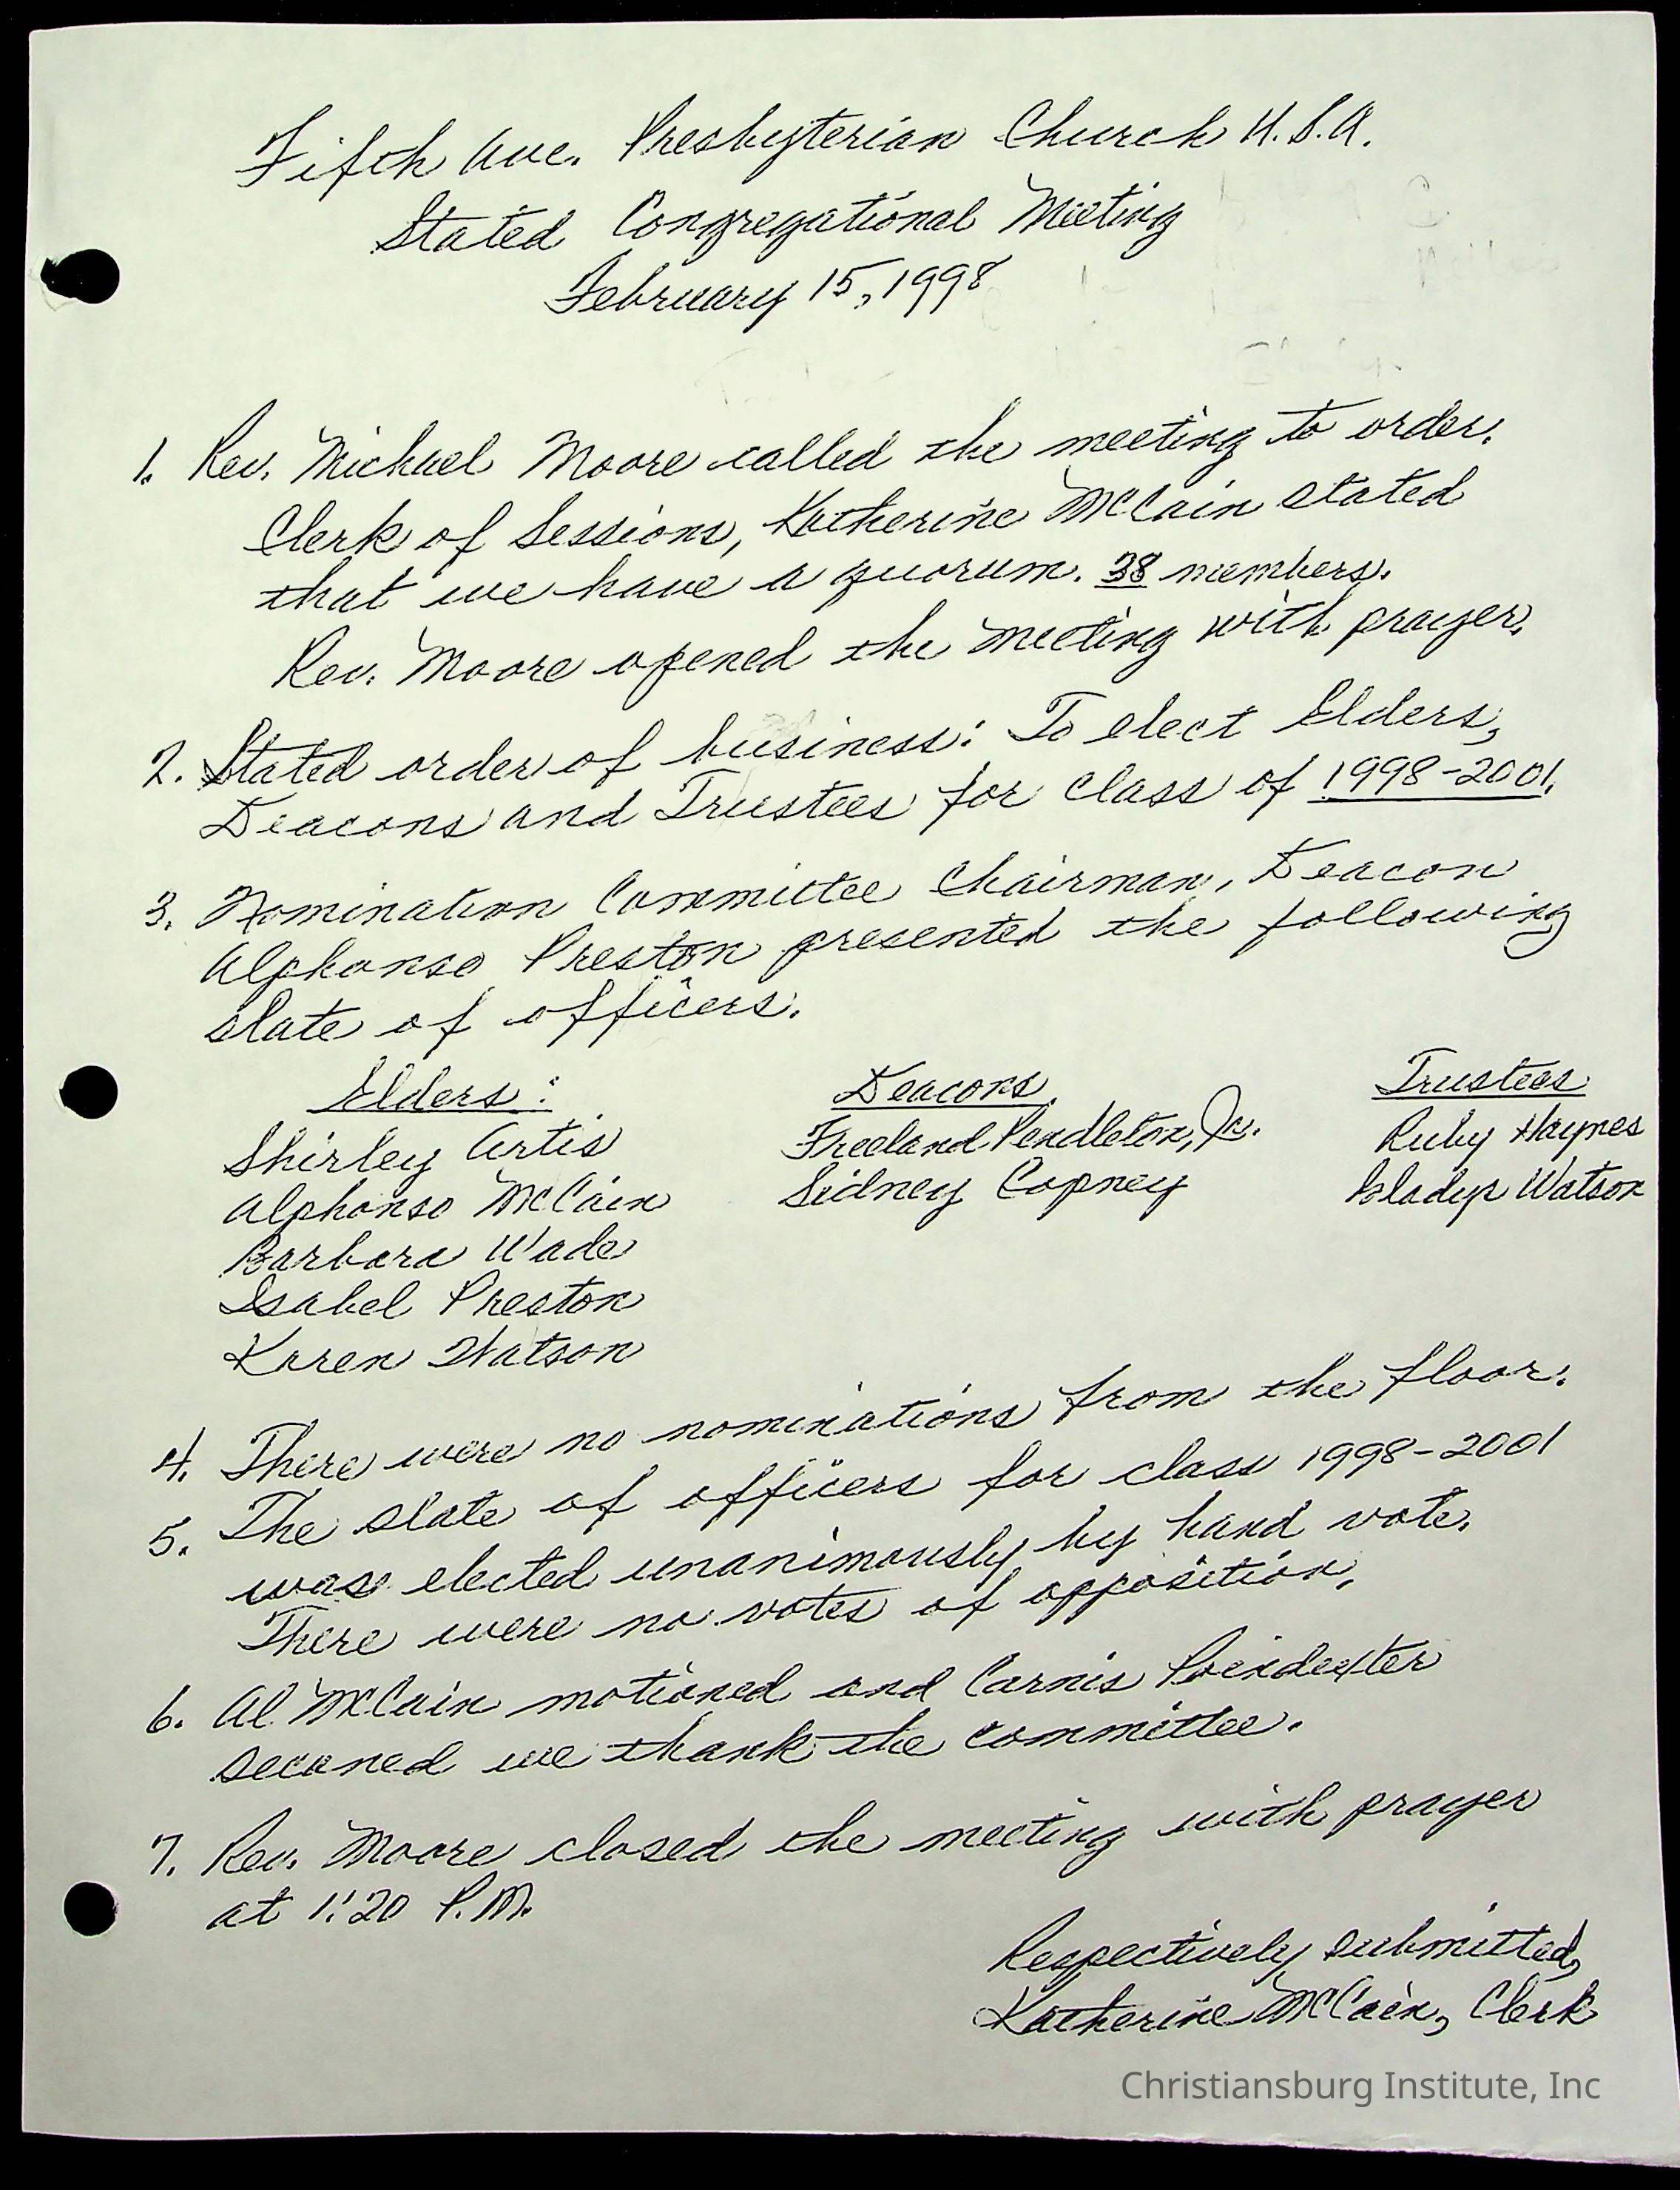 Fifth Ave. Presbyterian Church U.S.A.
Stated Congregational Meeting
February 15, 1998
1. Rev. Michael Moore called the meeting to order.
Clerk of Sessions, Katherine McCain stated
that we have a quorum. 38 members.
Rev. Moore opened the meeting with prayer.
2. Stated order of business: To elect Elders,
Deacons and Trustees for class of 1998-2001.
3. Nomination Committee Chairman, Deacon
Alphonso Preston presented the following
slate of officers.
Elders:
Shirley Artis
Alphonso McCain
Barbara Wade
Isabel Preston
Karen Watson
Deacons
Freeland Pendleton, Jr.
Sidney Copney
Trustees
Ruby Haynes
Gladys Watson
4. There were no nominations from the floor.
5. The slate of officers for class 1998-2001
was elected unanimously by hand vote.
There were no votes of opposition.
6. Al McCain motioned and Carnis Poindexter
seconed we thank the committee.
7. Rev. Moore closed the meeting with prayer
at 1:20 P.M.
Respectively submitted,
Katherine McCain, Clerk
Christiansburg Institute, Inc